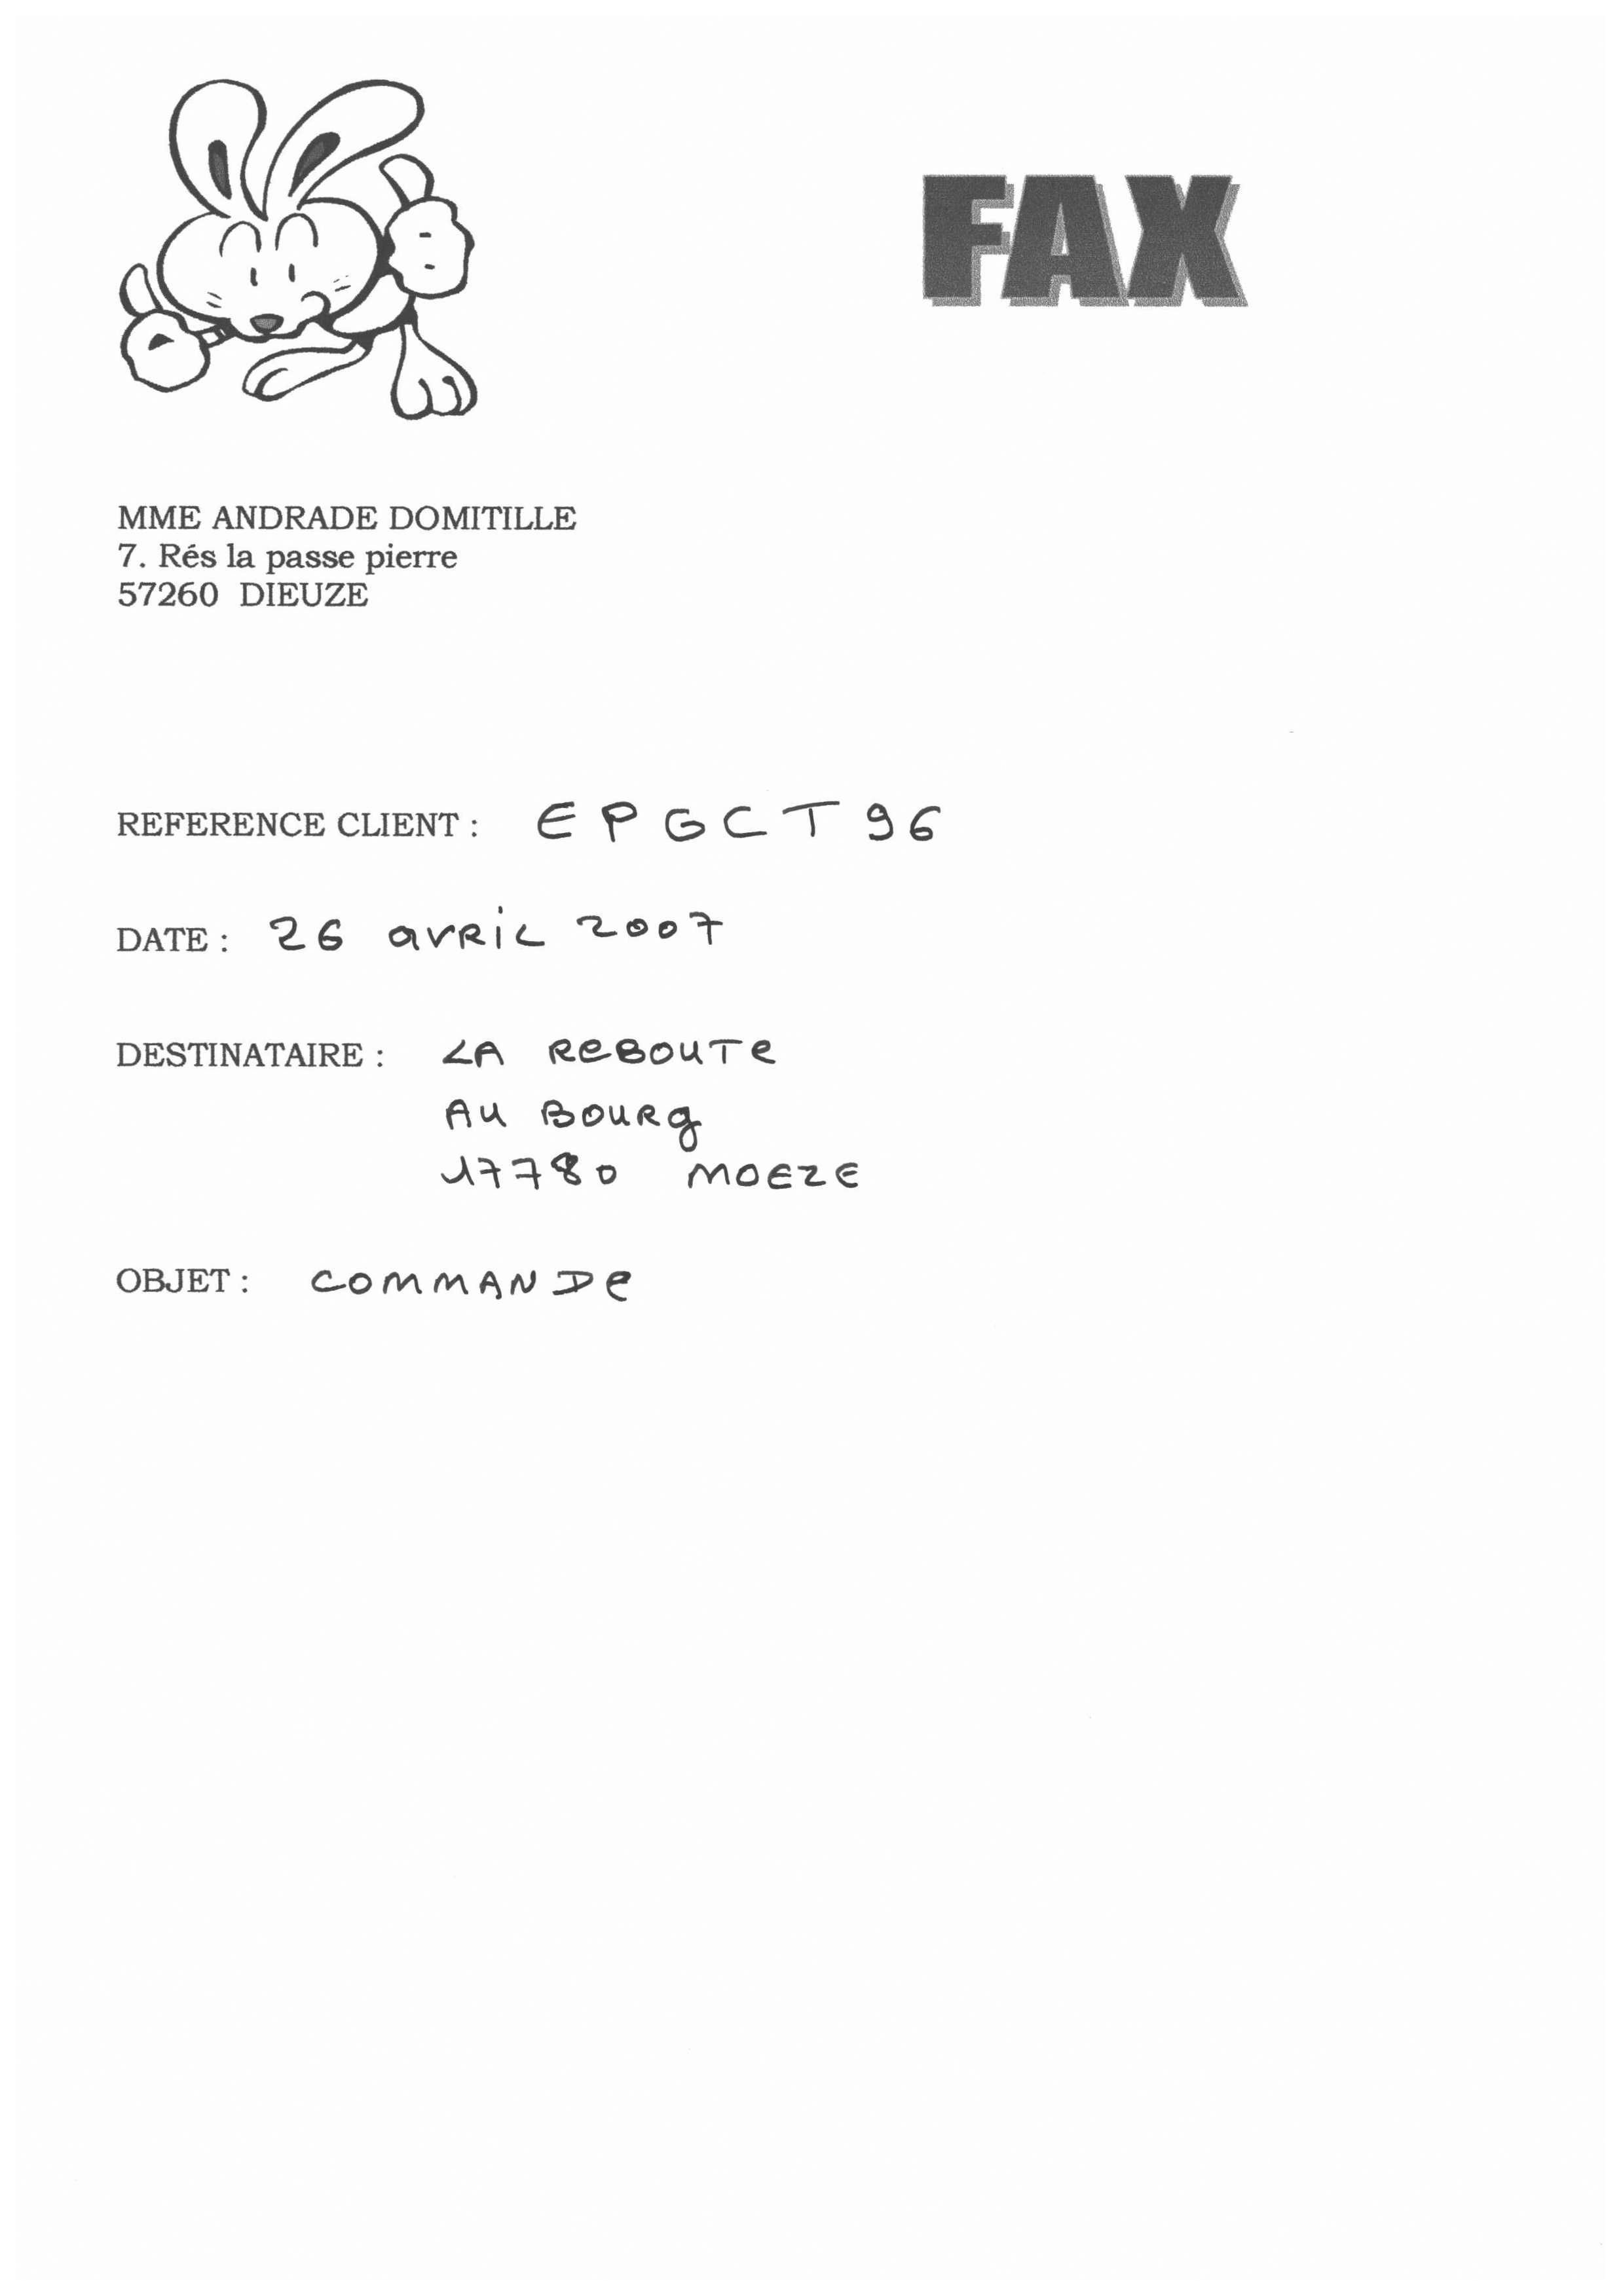 FAX
MME ANDRADE DOMITILLE
7. Rés la passe pierre
57260 DIEUZE
REFERENCE CLIENT : EPGCT96
DATE : 26 avRiL 2007
DESTINATAIRE : LA ReBOUTe
AU BOURg
17780 MOEZE
OBJET : COMMANDe